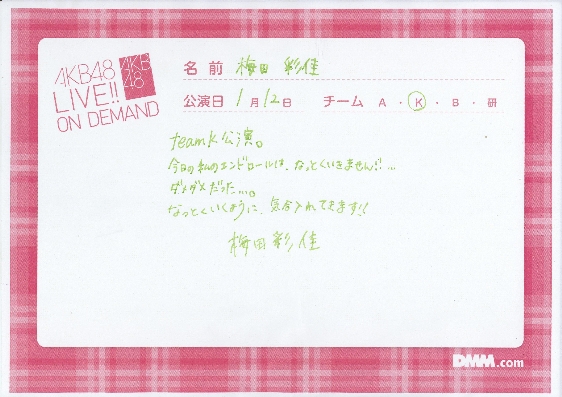 AKB48
LIVE!!
ON DEMAND
AKB
48
名前 梅田 彩佳
公演日 1月12日 チーム A・K・B・研
teamK公演。
今日の私のエンドロールは、なっとくいきません!!…
ダメダメだった…。
なっとくいくように、気合入れてきます!!
梅田彩佳
DMM.com